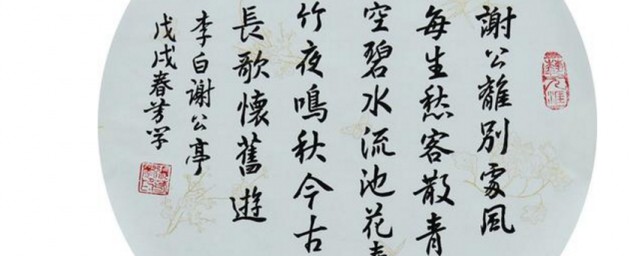 謝公離別處風
每生愁客散青
空碧水流池花春
竹夜鳴秋今古
長歌懷舊遊
李白謝公亭
戊戌春芳